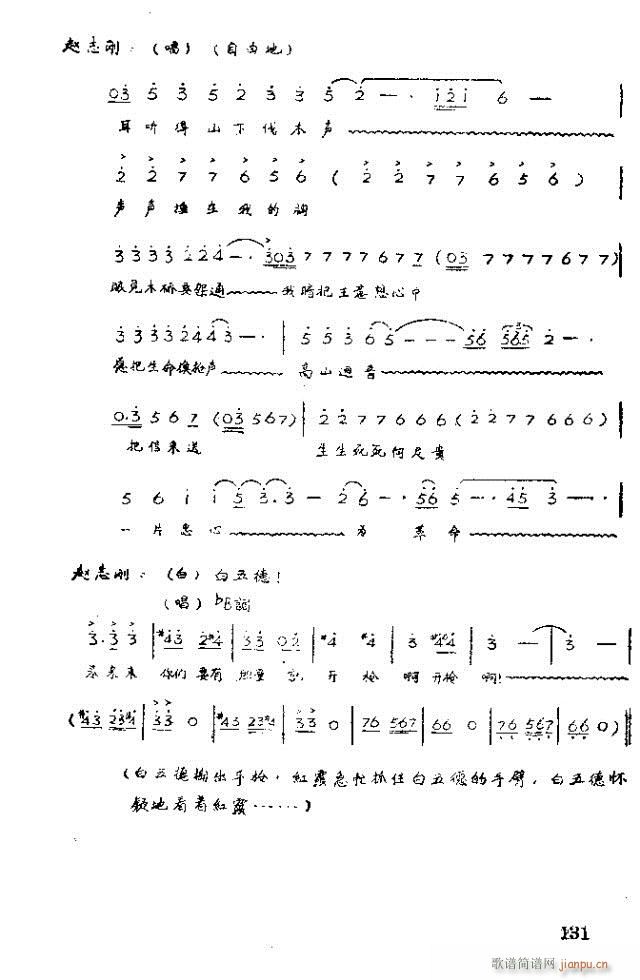 赵志刚：（唱）（自由地）
03 5 3 5 2 3 3 5 2 — · 121 6 —
耳听得山下伐木声
2 2 7 7 6 5 6 ( 2 2 7 7 6 5 6 )
声声撞在我的胸
3 3 3 3 2 2 4 — · 303 7 7 7 7 6 7 7 (03 7 7 7 7 6 7 7)
眼见木桥要架通 我暗把主意想心中
3 3 3 3 2 4 4 3 — · | 5 5 3 6 5 — — — 56 565 2 — ·
愿把生命换枪声 高山迴音
0.3 5 6 7 (03 567) | 2 2 7 7 6 6 6 (2 2 7 7 6 6 6)
把信来送 生生死死何足贵
5 6 i i 5 3.3 — 2 6 — · 56 5 — · 45 3 —
一片忠心 为革命
赵志刚：（白）白五德！
（唱）♭E调
3·3 3 | #43 2#4 | 33 02 | #4 #4 | 3 #44 | 3 — | 3 —
来来来 你们要有 开枪啊开枪啊！
(#43 23#4 | 33 0 | #43 23#4 | 33 0 | 76 567 | 66 0 | 76 567 | 66 0)
（白五德掏出手枪，紅霞急忙抓住白五德的手臂，白五德怀
疑地看着紅霞……）
131
歌谱简谱网 jianpu.cn